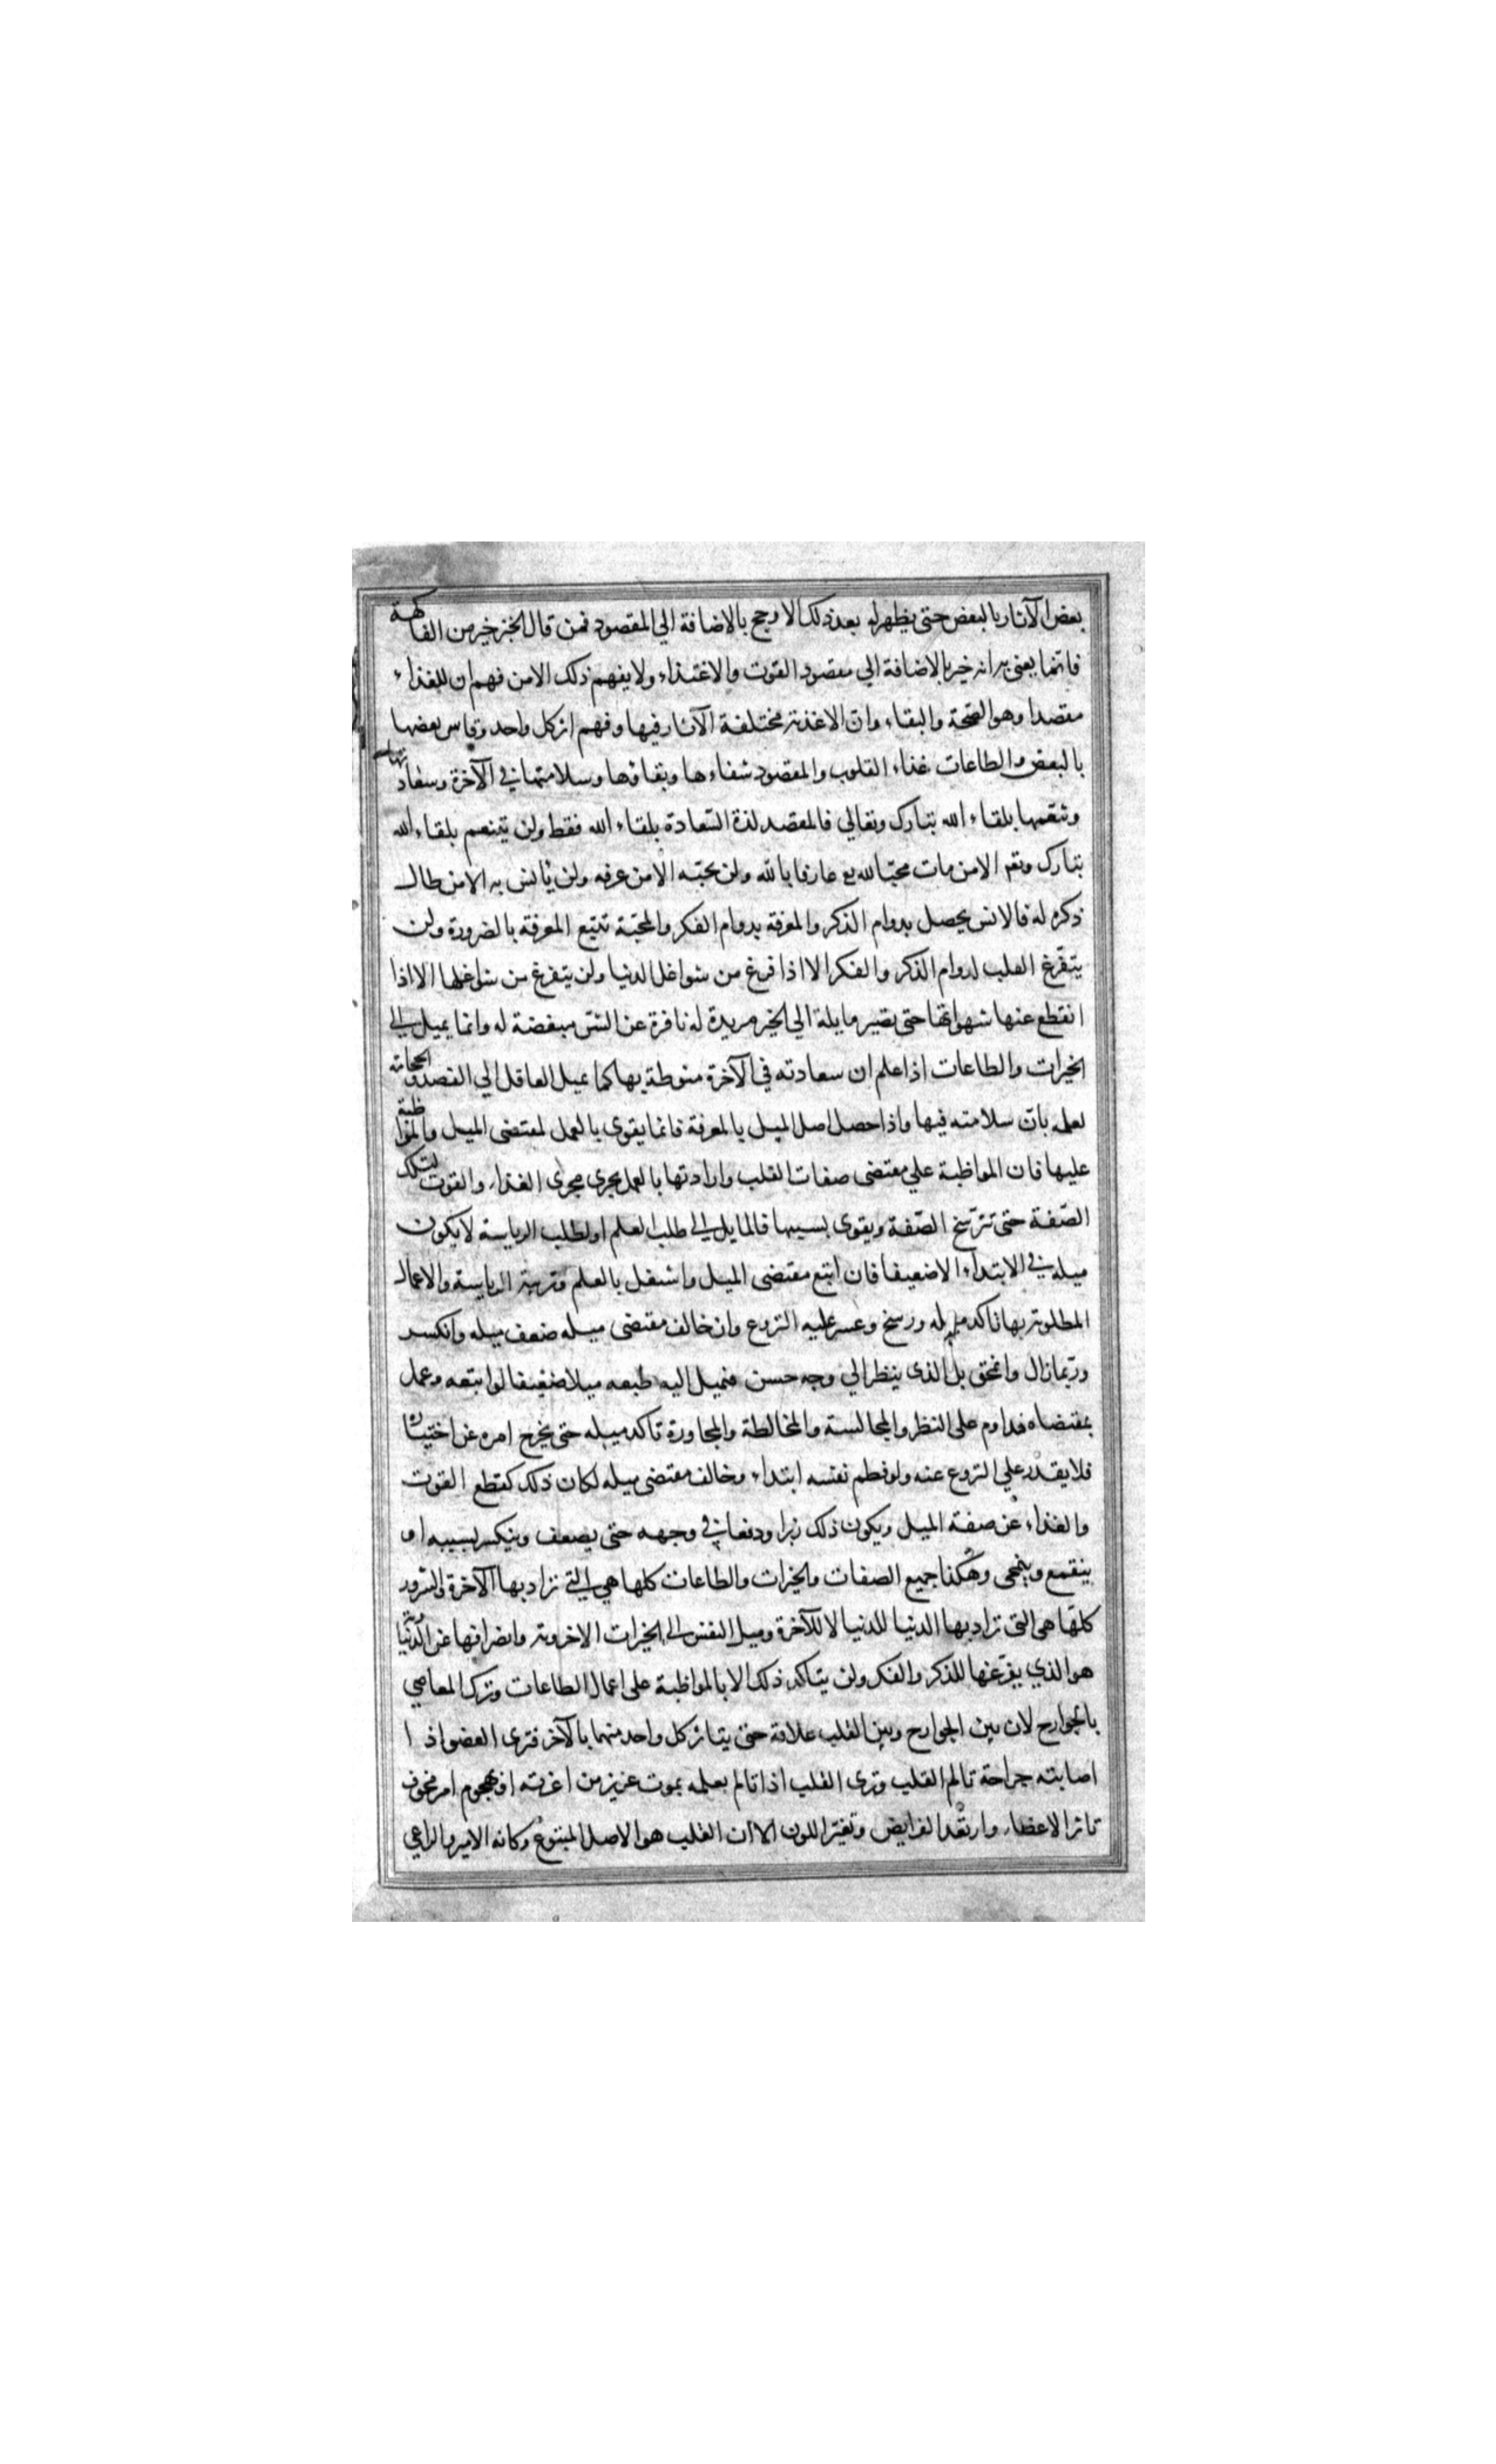 بعض الآثار بالبعض حتى يظهر له بعد ذلك الارجح بالاضافة الي المقصود فمن قال الخبز خير من الفاكهة
فانما يعني به انه خير بالاضافة الي مقصود القوت والاغتذاء ولا يفهم ذلك الا من فهم ان للغذاء
مقصدا وهو الصحة والبقاء وان الاغذية مختلفة الآثار فيها وفهم اثر كل واحد وقاس بعضها
بالبعض والطاعات غذاء القلوب والمقصود شفاءها وبقاؤها وسلامتها في الآخرة وسعادتها
وتنعمها بلقاء الله تبارك وتعالي فالمقصد لذة السعادة بلقاء الله فقط ولن يتنعم بلقاء الله
تبارك وتع الا من مات محبا لله تع عارفا بالله ولن يحبه الا من عرفه ولن يأنس به الا من طال
ذكره له فالانس يحصل بدوام الذكر والمعرفة بدوام الفكر والمحبة تتبع المعرفة بالضرورة ولن
يتفرغ القلب لدوام الذكر والفكر الا اذا فرغ من شواغل الدنيا ولن يتفرغ من شواغلها الا اذا
انقطع عنها شهواتها حتى يصير مايلة الي الخير مريدة له نافرة عن الشر مبغضة له وانما يميل الي
الخيرات والطاعات اذا علم ان سعادته في الآخرة منوطة بها كما يميل العاقل الي الفصد والحجامة
لعلمه بان سلامته فيها واذا حصل اصل الميل بالمعرفة فانما يقوى بالعمل لمقتضى الميل والمواظبة
عليها فان المواظبة علي مقتضى صفات القلب وارادتها بالعمل يجري مجرى الغذاء والقوت لتلك
الصفة حتى تترسخ الصفة ويقوى بسببها فالمايل الي طلب العلم او لطلب الرياسة لا يكون
ميله في الابتداء الا ضعيفا فان اتبع مقتضى الميل واشتغل بالعلم وتربية الرياسة والاعمال
المطلوبة بها تاكد ميله ورسخ وعسر عليه النزوع وان خالف مقتضى ميله ضعف ميله وانكسر
وربما زال وانمحق بل الذي ينظر الي وجه حسن فيميل اليه طبعه ميلا ضعيفا لو اتبعه وعمل
بمقتضاه فداوم على النظر والمجالسة والمخالطة والمجاورة تاكد ميله حتى يخرج امره عن اختياره
فلا يقدر علي النزوع عنه ولو فطم نفسه ابتداء وخالف مقتضى ميله لكان ذلك كقطع القوت
والغذاء عن صفة الميل ويكون ذلك زبرا ودفعا في وجهه حتى يضعف وينكسر بسببه او
ينقمع وينمحى وهكذا جميع الصفات والخيرات والطاعات كلها هي التي تراد بها الآخرة والشرور
كلها هي التي تراد بها الدنيا للدنيا لا للآخرة وميل النفس الي الخيرات الاخروية وانصرافها عن الدنيوية
هو الذي يفرغها للذكر والفكر ولن يتاكد ذلك الا بالمواظبة على اعمال الطاعات وترك المعاصي
بالجوارح لان بين الجوارح وبين القلب علاقة حتى يتاثر كل واحد منهما بالآخر فترى العضو اذا
اصابته جراحة تالم القلب وترى القلب اذا تالم بعلمه بموت عزيز من اعزته او بهجوم امر مخوف
تاثر الاعضاء وارتعد الفرايض وتغير اللون الا ان القلب هو الاصل المتبوع وكانه الامير والراعي